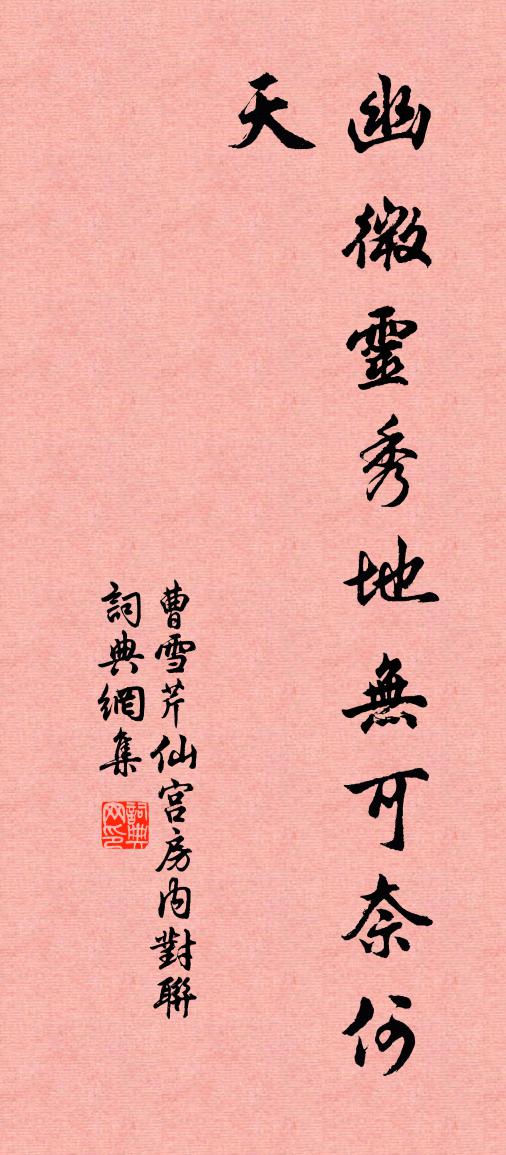 幽微靈秀地無可奈何
天
曹雪芹仙宫房内對聯
詞典網集
詞典网印